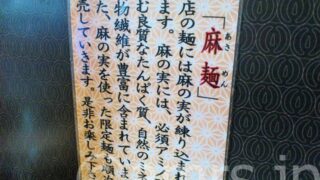 「麻麺」
あさ めん
店の麺には麻の実が練り込まれ
ます。麻の実には、必須アミノ
む良質なたんぱく質、自然のミネ
物繊維が豊富に含まれていま
た、麻の実を使った限定麺も順
売していきます。是非お楽しみ下